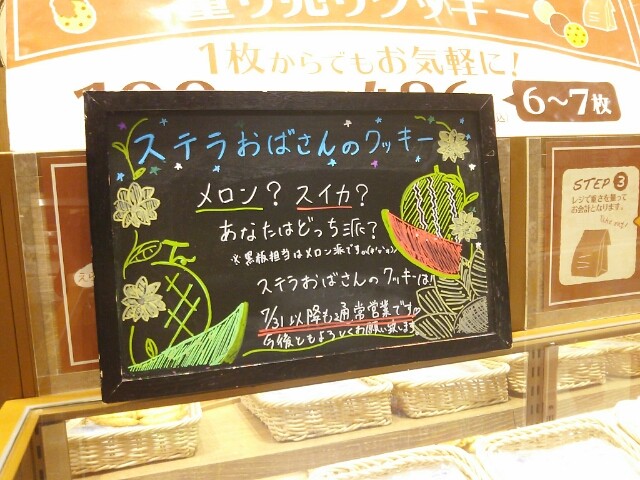 量り売りクッキー
1枚からでもお気軽に!
6〜7枚
ステラおばさんのクッキー
メロン? スイカ?
あなたはどっち派?
※黒板担当はメロン派です。
ステラおばさんのクッキーは
7/31以降も通常営業です♡
今後ともよろしくお願い致します
STEP 3
レジで重さを量って
お会計となります。